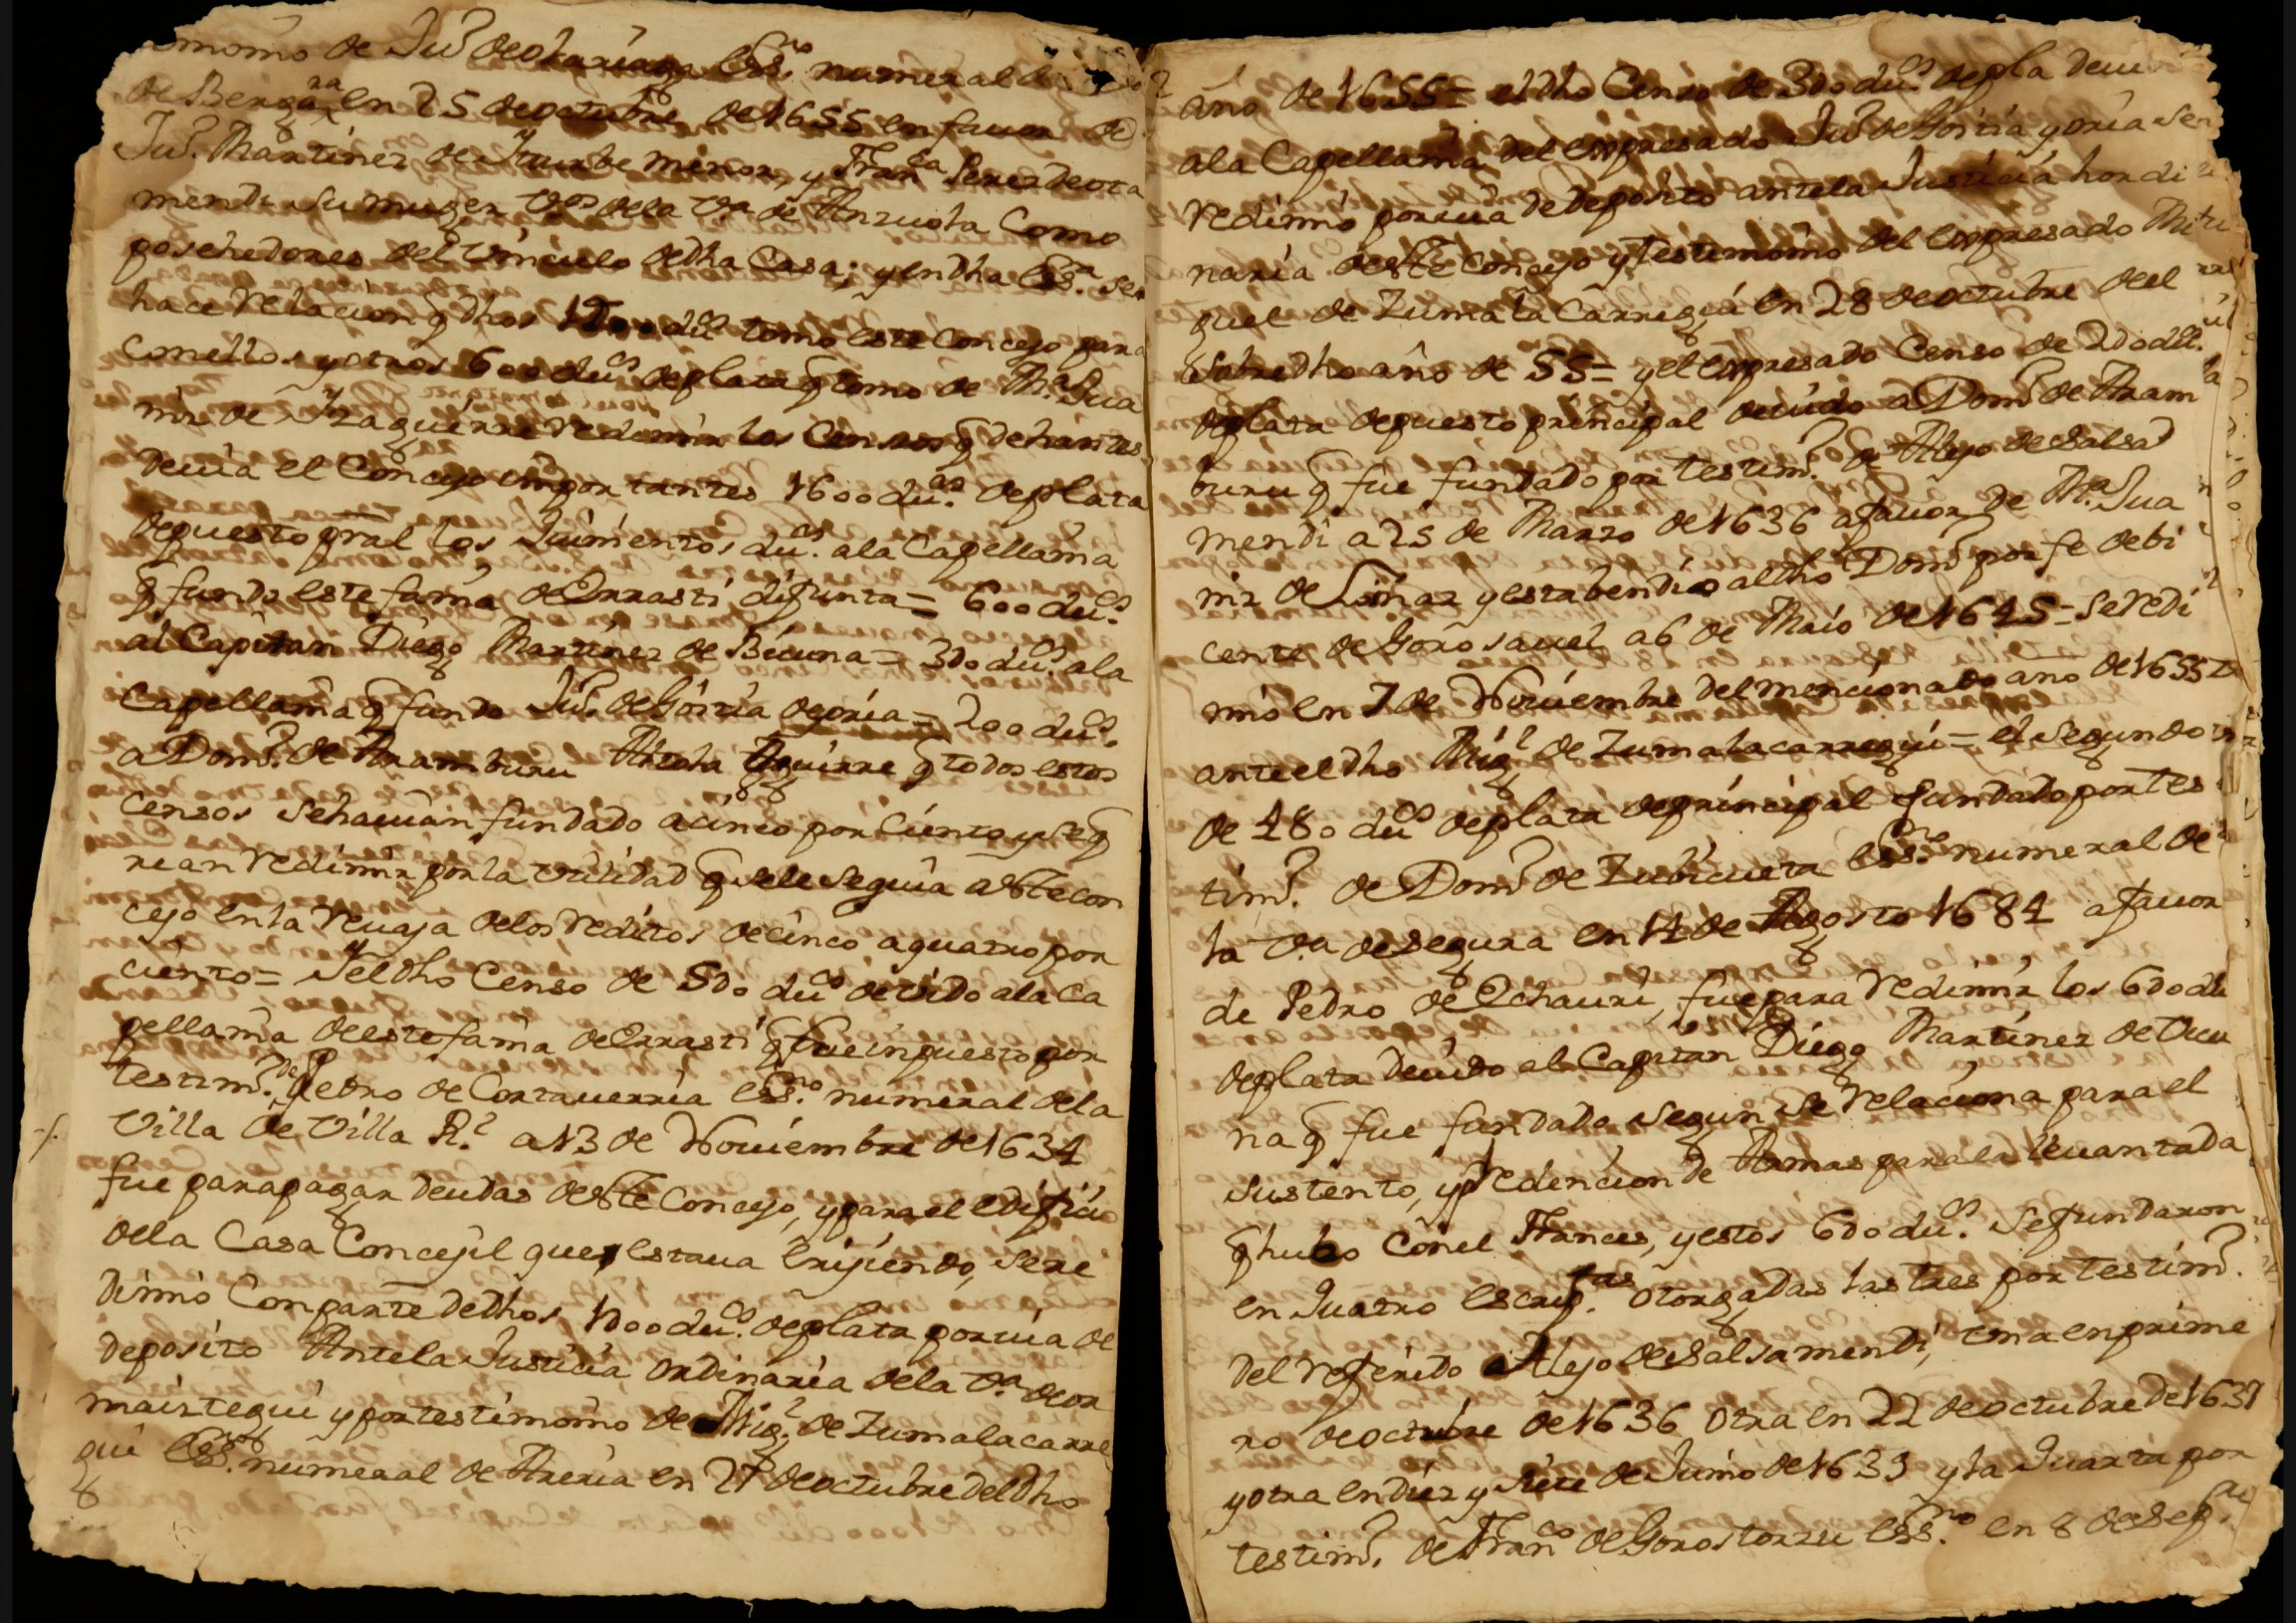 timonio de Juº de oLariaga Essno numeral de
de Bergara en 25 de octubre de 1655 en fauor de
Juº. Martinez de Yturbe menor, y Franca Perez de ota
mendi su muger Vos de la Va de Anzuola Como
posehedores del Vinculo de dha Casa; y en dha Essa. se
hace relacion q dhos 1D00 ducs tomo este Concejo para
Con ellos y otros 600 ducs de plata q tomo de Ma. Jua
niz de Yzaguirre redimir los Censos q de hantes
deuia el Concejo importantes 1600 ducs. de plata
de puesto pral los quinientos ducs. a la Capellania
q fundo estefania de Errasti difunta = 600 ducs.
al Capitan Diego Martinez de Vicuna = 3D0 ducs. ala
Capellania q fundo Juº. de Goitia de oria = 200 ducs.
a Domº. de Aramburu Aguirre q todos estos
censos se hauian fundado a cinco por Ciento y se q
rian redimir por la Vtilidad q se le seguia a este con
cejo en la Reuaja de los reditos de cinco a quatro por
ciento = Y el dho Censo de 5D0 ducs deuido a la Ca
pellania de estefania de Errasti q fue inpuesto por
testimº. de Pedro de Cortauerria essno. numeral de la
Villa de Villa Rl a 13 de Nouiembre de 1634
fue para pagar deudas de este Concejo, y para el edificio
de la Casa Concejil que estaua erijiendo, se re
dimio Con parte de dhos 1D00 ducs. de plata por uia de
deposito Ante la Justicia ordinaria de la Va. de or
maiztegui y por testimonio de Migl. de Zumalacarre
gui Essno. numeral de Areria en 27 de octubre del dho
año de 1655 = el dho Censo de 3D0 ducs. de pla deui
a la Capellania del expresado Juº de Goitia y oria se
redimio por uia de deposito ante la Justicia hordi
naria de este Concejo y testimonio del expresado Mi
guel de Zumala Carregui en 28 de octubre del
sobre dho año de 55 = y el expresado Censo de 2D0 ducs.
de plata de puesto principal deuido a Domº de Aram
buru q fue fundado por testimº. de Alejo de Salsa
mendi a 25 de Marzo de 1636 a fauor de Ma. Jua
niz de Liñaz y esta bendio al dho Domº por fe de bi
cente de Gorosauel a 6 de Maio de 1645 = se redi
mio en 7 de Nouiembre del mencionado año de 1655
ante el dho Migl de Zumalacarregui = el segundo
de 480 ducs de plata de principal fundado por tes
timº. de Domº de Zubicueta essno numeral de
la Va de segura en 14 de Agosto 1684 a fauor
de Pedro de Echauri, fue para redimir los 6D0 du
de plata deuido al Capitan Diego Martinez de Vicu
na q fue fundado segun se relaciona para el
sustento, y redencion de Armas para la leuantada
q hubo Con el Frances, y estos 6D0 ducs. se fundaron
en quatro escripas. otorgadas las tres por testimº.
del referido Alejo de Salsamendi, Vna en prime
ro de octubre de 1636 otra en 22 de octubre de 1637
y otra en diez y siete de Junio de 1639 y la quarta por
testimº. de Franco de Gorostorzu Essno. en 8 de Sep.